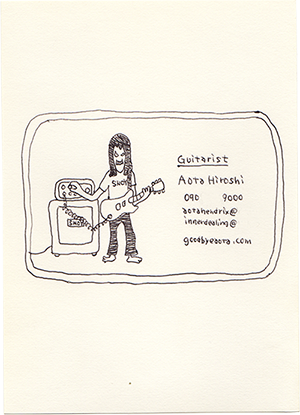 Guitarist
Aota Hiroshi
090 9000
aotahendrix@
innerdealing@
goodbyeaota.com
SHOY
SHOY